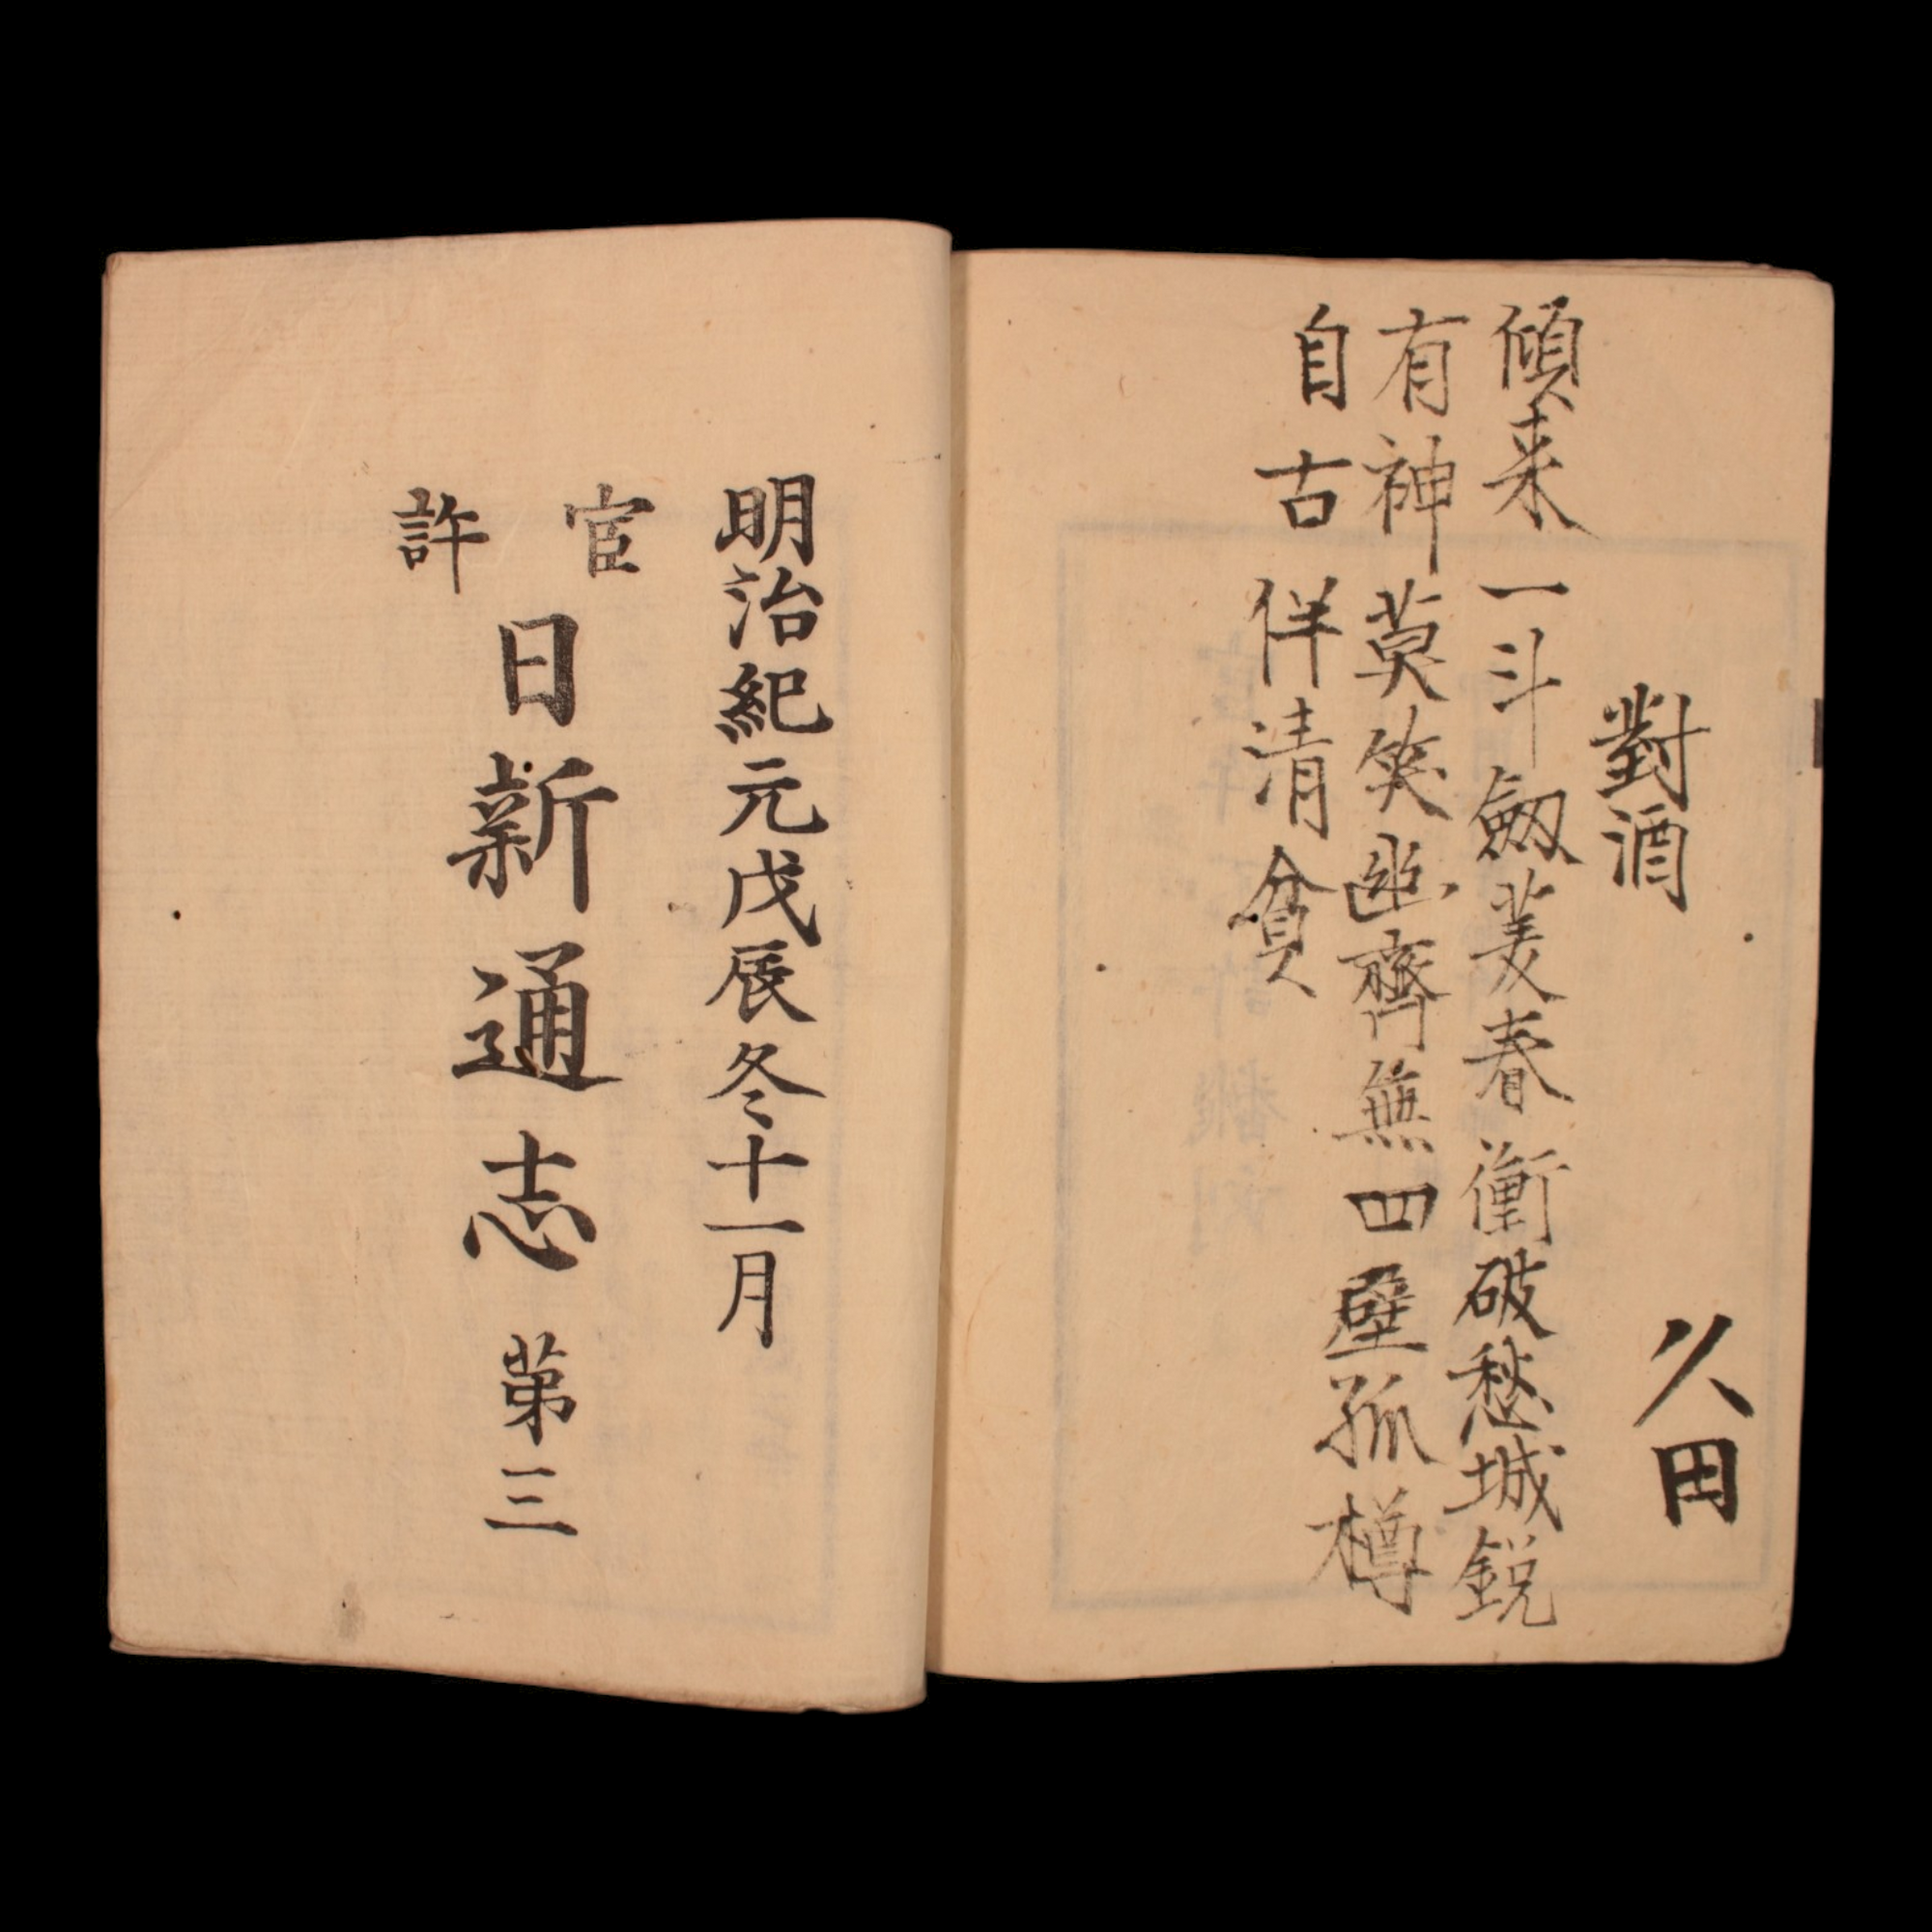 久田
對酒
傾来一斗劔菱春衝破愁城鋭
有神莫笑幽齊無四壁孤樽
自古伴清貧
明治紀元戊辰冬十一月
官許
日新通志 第三